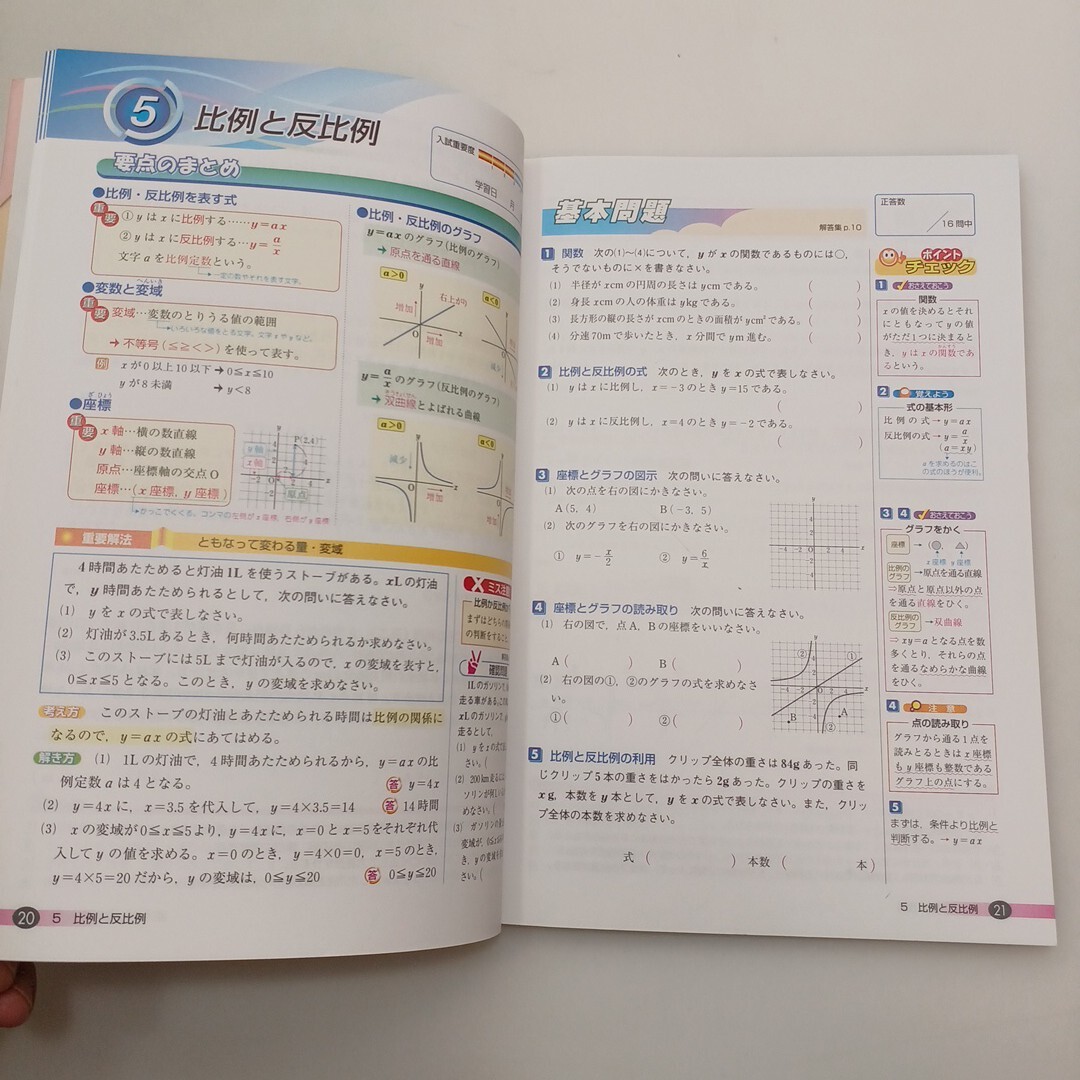 5 比例と反比例
入試重要度
学習日 月
要点のまとめ
●比例・反比例を表す式
重要
① y は x に比例する……y=ax
② y は x に反比例する…y=a/x
文字 a を比例定数という。
一定の数やそれを表す文字。
●変数と変域
へんいき
重要
変域…変数のとりうる値の範囲
いろいろな値をとる文字。文字 x や y など。
→ 不等号(≦≧<>)を使って表す。
例 x が 0 以上 10 以下 → 0≦x≦10
y が 8 未満 → y<8
●座標
ざひょう
重要
x 軸…横の数直線
y 軸…縦の数直線
原点…座標軸の交点 O
座標…(x 座標, y 座標)
かっこでくくる。コンマの左側が x 座標, 右側が y 座標
P(2,4)
y 軸
x 軸
原点
●比例・反比例のグラフ
y=ax のグラフ(比例のグラフ)
→ 原点を通る直線
a>0
右上がり
増加
増加
a<0
減少
y=a/x のグラフ(反比例のグラフ)
→ 双曲線とよばれる曲線
a>0
減少
増加
a<0
増加
重要解法 ともなって変わる量・変域
4 時間あたためると灯油 1L を使うストーブがある。xL の灯油
で, y 時間あたためられるとして, 次の問いに答えなさい。
(1) y を x の式で表しなさい。
(2) 灯油が 3.5L あるとき, 何時間あたためられるか求めなさい。
(3) このストーブには 5L まで灯油が入るので, x の変域を表すと,
0≦x≦5 となる。このとき, y の変域を求めなさい。
考え方 このストーブの灯油とあたためられる時間は比例の関係に
なるので, y=ax の式にあてはめる。
解き方 (1) 1L の灯油で, 4 時間あたためられるから, y=ax の比
例定数 a は 4 となる。 答 y=4x
(2) y=4x に, x=3.5 を代入して, y=4×3.5=14 答 14 時間
(3) x の変域が 0≦x≦5 より, y=4x に, x=0 と x=5 をそれぞれ代
入して y の値を求める。x=0 のとき, y=4×0=0, x=5 のとき,
y=4×5=20 だから, y の変域は, 0≦y≦20 答 0≦y≦20
ミス注意
比例か反比例か
まずはどちらの関
の判断をすること
確認問題
1L のガソリンで,
走る車がある。この
xL のガソリンで,
走るとして,
(1) y を x の式で
さい。(
(2) 200km 走るに
ソリンが何L
めなさい。(
(3) ガソリンの
変域が, 0≦x
き, y の変域を
さい。(
20 5 比例と反比例
基本問題
解答集 p.10
正答数
/16問中
1 関数 次の(1)～(4)について, y が x の関数であるものには○,
そうでないものに×を書きなさい。
(1) 半径が xcm の円周の長さは ycm である。 ( )
(2) 身長 xcm の人の体重は ykg である。 ( )
(3) 長方形の縦の長さが xcm のときの面積が ycm²である。 ( )
(4) 分速 70m で歩いたとき, x 分間で ym 進む。 ( )
2 比例と反比例の式 次のとき, y を x の式で表しなさい。
(1) y は x に比例し, x=-3 のとき y=15 である。
( )
(2) y は x に反比例し, x=4 のとき y=-2 である。
( )
3 座標とグラフの図示 次の問いに答えなさい。
(1) 次の点を右の図にかきなさい。
A(5, 4) B(-3, 5)
(2) 次のグラフを右の図にかきなさい。
① y=-x/2 ② y=6/x
4 座標とグラフの読み取り 次の問いに答えなさい。
(1) 右の図で, 点 A, B の座標をいいなさい。
A( ) B( )
(2) 右の図の①, ②のグラフの式を求めなさ
い。
①( ) ②( )
5 比例と反比例の利用 クリップ全体の重さは 84g あった。同
じクリップ 5 本の重さをはかったら 2g あった。クリップの重さを
xg, 本数を y 本として, y を x の式で表しなさい。また, クリッ
プ全体の本数を求めなさい。
式 ( ) 本数 ( 本)
ポイント
チェック
1 おさえておこう
関数
x の値を決めるとそれ
にともなって y の値
がただ 1 つに決まると
き, y は x の関数であ
るという。
2 覚えよう
式の基本形
比例の式 → y=ax
反比例の式 → y=a/x
(a=xy)
a を求めるのはこ
の式のほうが便利。
3 4 おさえておこう
グラフをかく
座標 → (○, △)
x 座標 y 座標
比例の
グラフ → 原点を通る直線
⇒ 原点と原点以外の点
を通る直線をひく。
反比例の
グラフ → 双曲線
⇒ xy=a となる点を数
多くとり, それらの点
を通るなめらかな曲線
をひく。
4 注意
点の読み取り
グラフから通る 1 点を
読みとるときは x 座標
も y 座標も整数である
グラフ上の点にする。
5
まずは, 条件より比例と
判断する。→ y=ax
5 比例と反比例 21